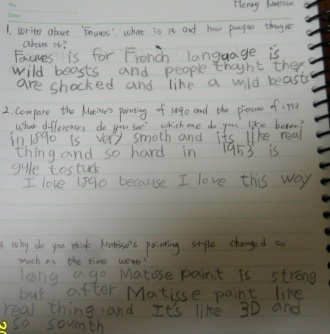 Henry Matisse
1. Write about 'Fauves'. what is it and how people thought
about it?
Fauves is for French langgage is
wild beasts and people thaght they
are shocked and like a wild beasts
2. Compare the Matisse's painting of 1890 and the picture of 1953
What differences do you see? which one do you like better?
in 1890 is very smoth and its like real
thing and so hard in 1953 is
tostuck
I love 1890 because I love this way
3. why do you think Matisse's painting style changed so
much as the time went?
long ago Matisse paint is strong
but after Matisse paint like
real thing and It's like 3D and
so